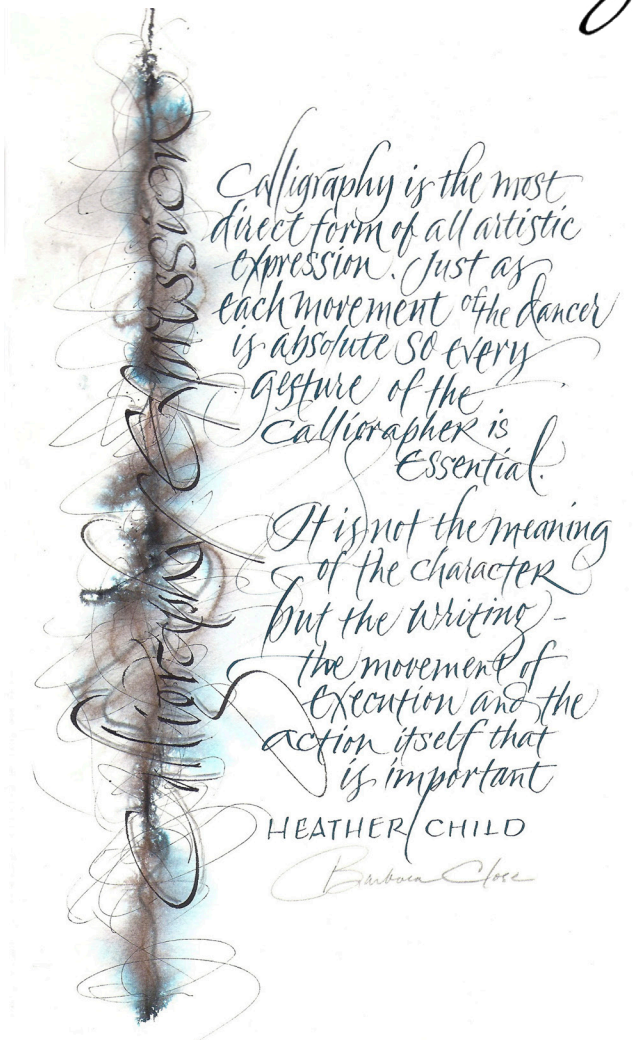 Calligraphy Expression
Calligraphy is the most
direct form of all artistic
expression. Just as
each movement of the dancer
is absolute so every
gesture of the
calligrapher is
Essential.
It is not the meaning
of the character
but the writing -
the movement of
execution and the
action itself that
is important
HEATHER CHILD
Barbara Close